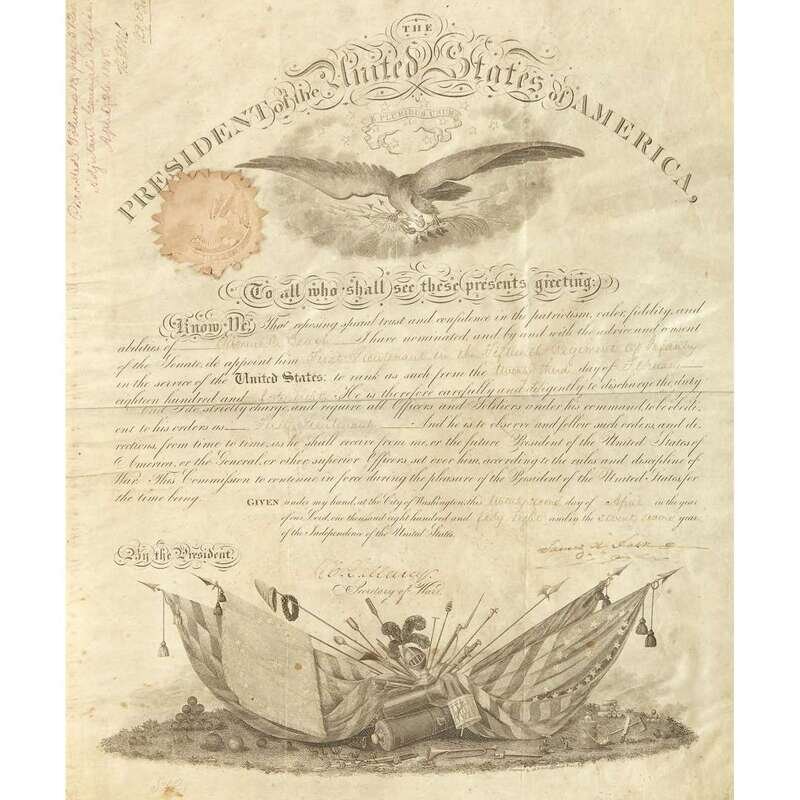 THE
United States
PRESIDENT of the of AMERICA,
E PLURIBUS UNUM
To all who shall see these presents greeting:
Know Ye, That reposing special trust and confidence in the patriotism, valor, fidelity, and
abilities of I have nominated, and by and with the advice and consent
of the Senate, do appoint him First Lieutenant in the Regiment of Infantry
in the service of the United States: to rank as such from the twenty third day of February
eighteen hundred and He is therefore carefully and diligently to discharge the duty
And I do strictly charge, and require all Officers and Soldiers under his command to be obedi-
ent to his orders as First Lieutenant And he is to observe and follow such orders, and di-
rections, from time to time, as he shall receive from me, or the future President of the United States of
America, or the General, or other superior Officers set over him, according to the rules and discipline of
War. This Commission to continue in force during the pleasure of the President of the United States for
the time being.
GIVEN under my hand, at the City of Washington, this day of April in the year
of our Lord, one thousand eight hundred and forty eight and in the seventy second year
of the Independence of the United States.
By the President,
James K. Polk
W. L. Marcy.
Secretary of War.